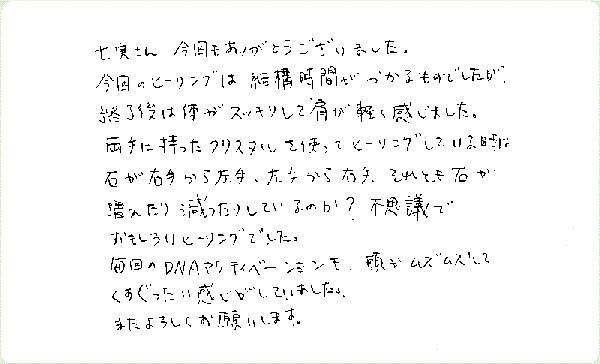 七実さん 今回もありがとうございました。
今回のヒーリングは結構時間がかかるものでしたが、
終了後は体がスッキリして肩が軽く感じました。
両手に持ったクリスタルを使ってヒーリングしている時は
石が右手から左手、左手から右手、それとも石が
増えたり減ったりしているのか？不思議で
おもしろいヒーリングでした。
毎回のDNAアクティベーションも、頭がムズムズして
くすぐったい感じがしていました。
またよろしくお願いします。